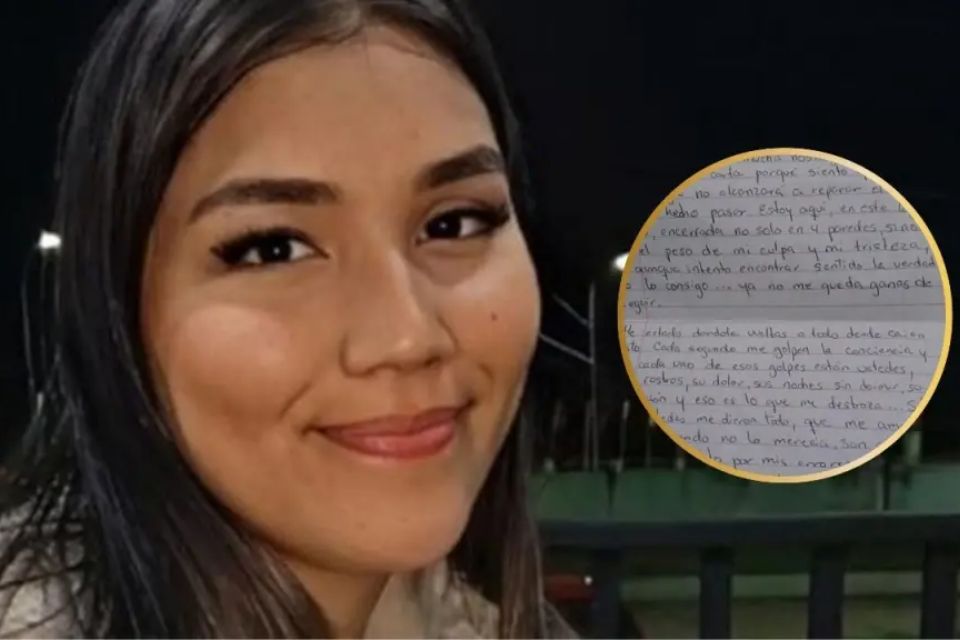 mucha nos
carta porque siento
no alcanzará a reparar el
hecho pasar. Estoy aquí, en este
encerrada no solo en 4 paredes, sino
el peso de mi culpa y mi tristeza,
aunque intento encontrar sentido la verdad
lo consigo... ya no me queda ganas de
eguir.
estado dandole vueltas a todo desde
to. Cada segundo me golpea la conciencia y
cada uno de esos golpes están ustedes,
rostros, su dolor, sus noches sin dormir, su
y eso es lo que me destroza...
me dieron todo, que me am
ndo no lo merecia, son
por mis errore